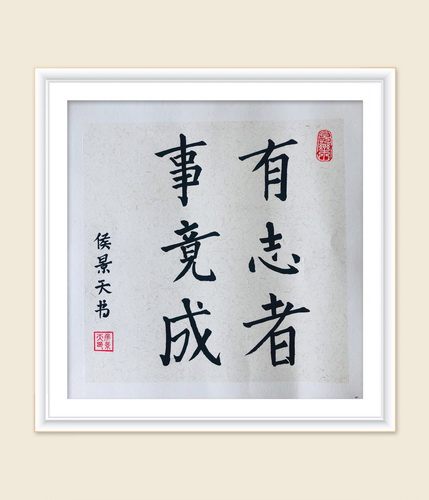 有志者
事竟成
侯景天书